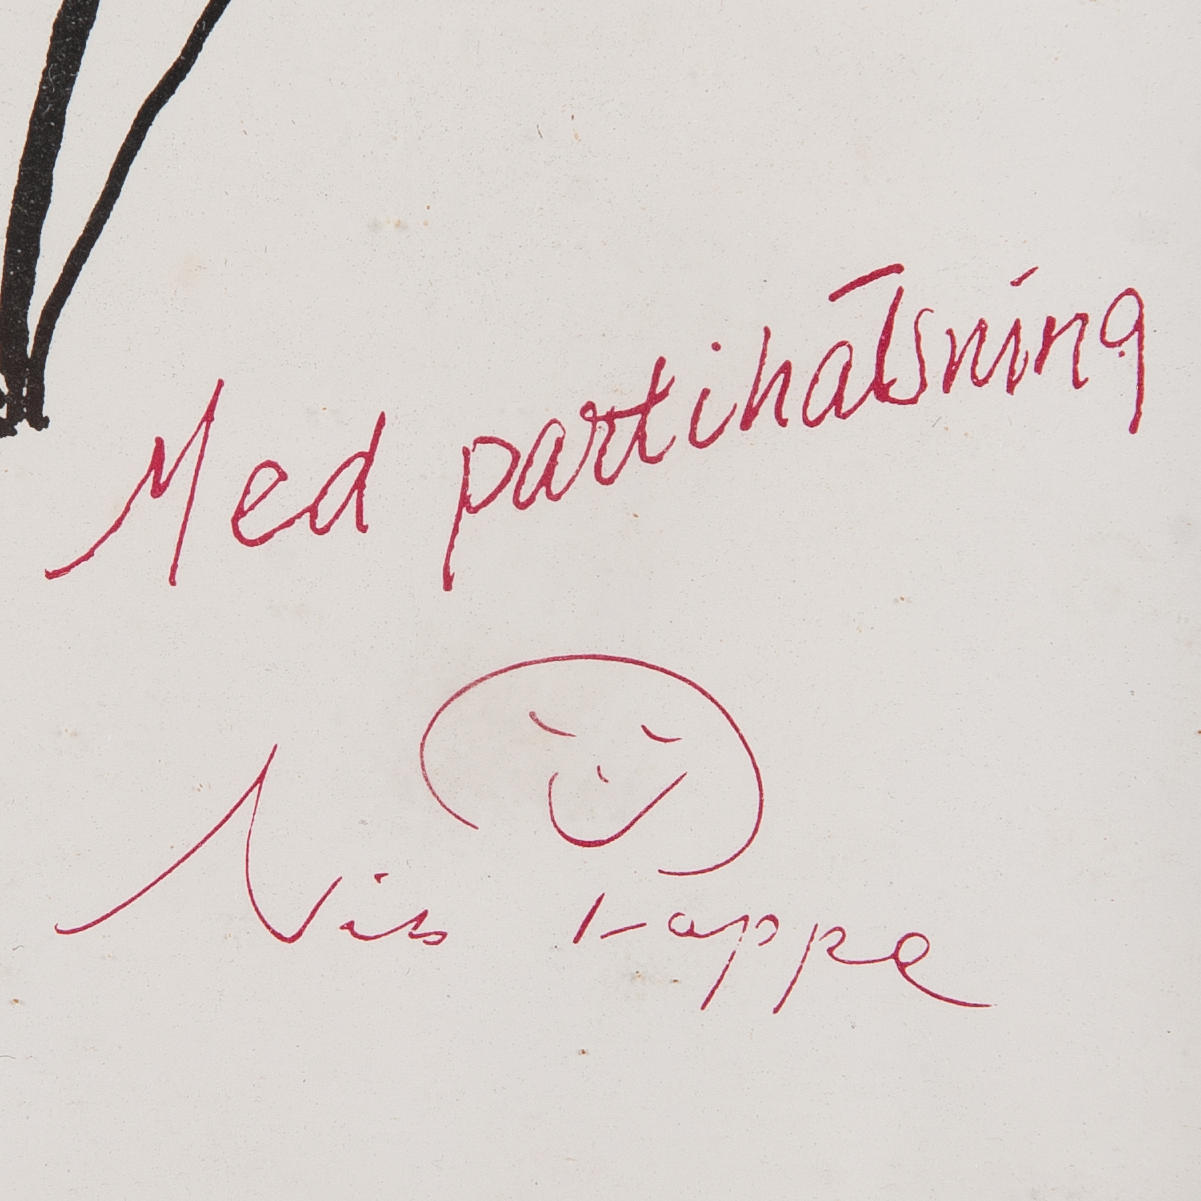 Med partihälsning
Nils Poppe